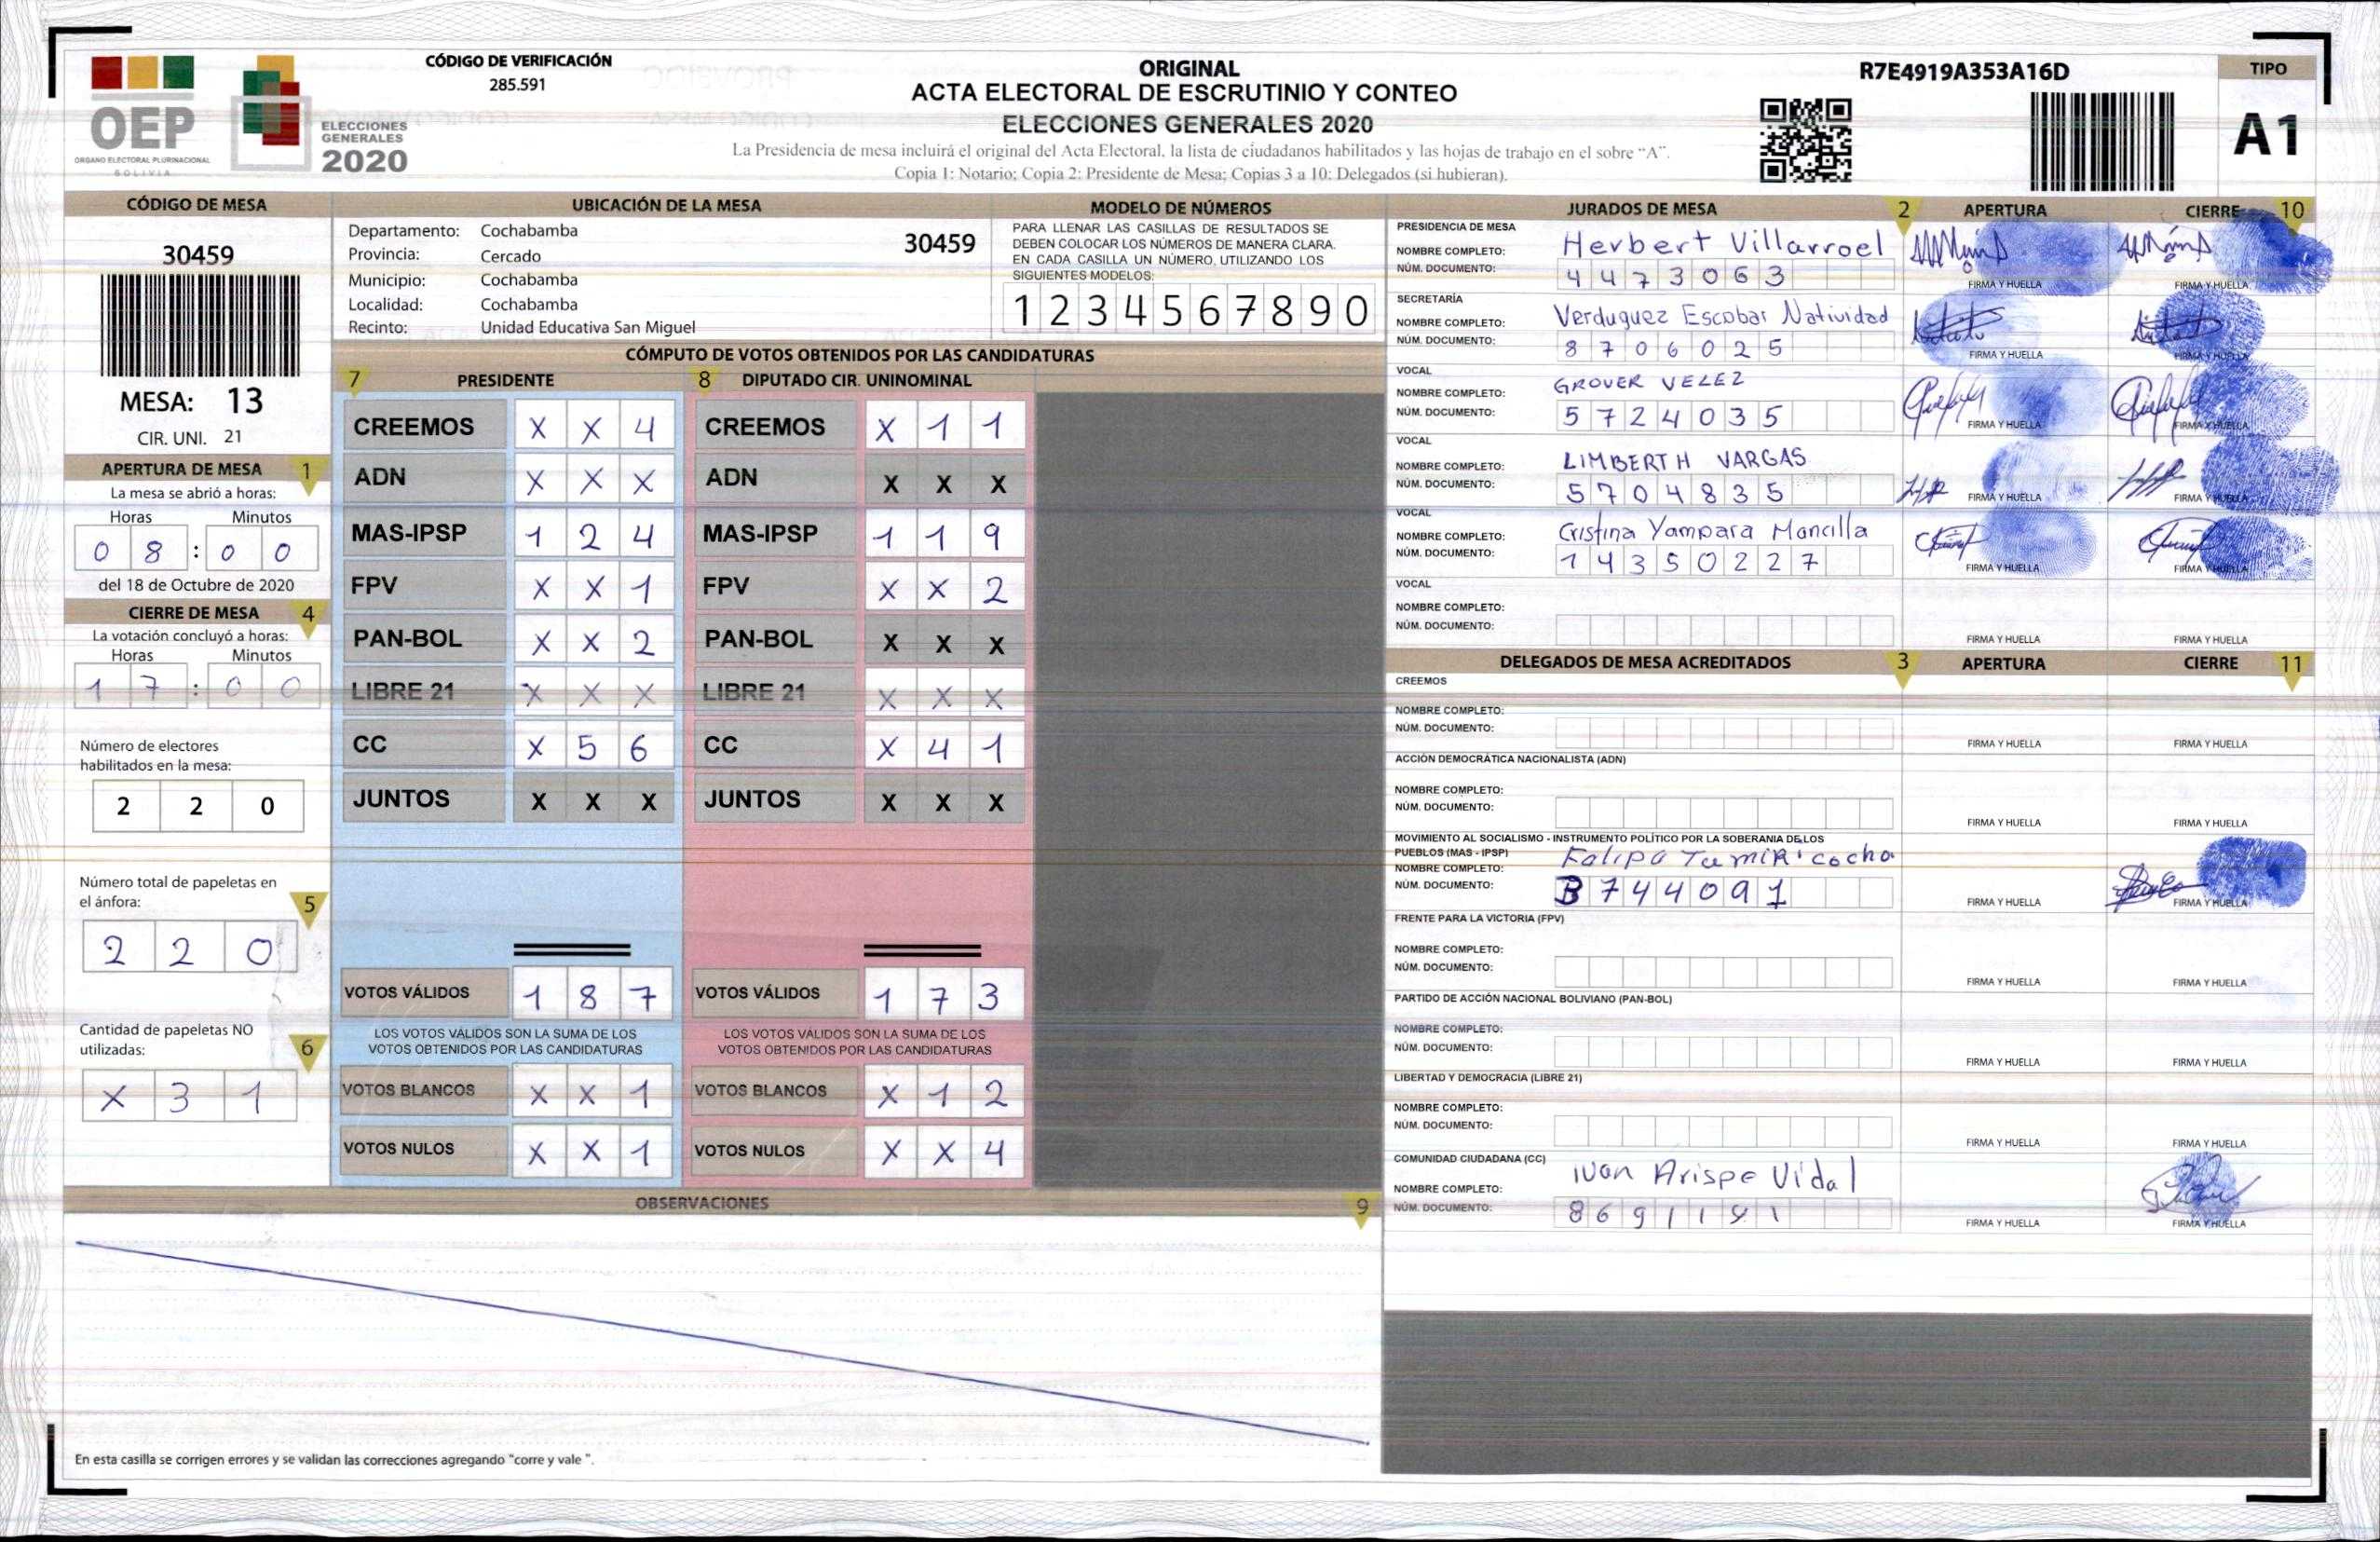 CÓDIGO DE VERIFICACIÓN
285.591
ORIGINAL
ACTA ELECTORAL DE ESCRUTINIO Y CONTEO
ELECCIONES GENERALES 2020
La Presidencia de mesa incluirá el original del Acta Electoral, la lista de ciudadanos habilitados y las hojas de trabajo en el sobre “A”.
Copia 1: Notario; Copia 2: Presidente de Mesa; Copias 3 a 10: Delegados (si hubieran).
R7E4919A353A16D
TIPO
A1
OEP
ORGANO ELECTORAL PLURINACIONAL
BOLIVIA
ELECCIONES
GENERALES
2020
CÓDIGO DE MESA
30459
MESA: 13
CIR. UNI. 21
APERTURA DE MESA 1
La mesa se abrió a horas:
Horas Minutos
0 8 : 0 0
del 18 de Octubre de 2020
CIERRE DE MESA 4
La votación concluyó a horas:
Horas Minutos
1 7 : 0 0
Número de electores
habilitados en la mesa:
2 2 0
Número total de papeletas en
el ánfora: 5
2 2 0
Cantidad de papeletas NO
utilizadas: 6
X 3 1
UBICACIÓN DE LA MESA
Departamento: Cochabamba
30459
Provincia: Cercado
Municipio: Cochabamba
Localidad: Cochabamba
Recinto: Unidad Educativa San Miguel
MODELO DE NÚMEROS
PARA LLENAR LAS CASILLAS DE RESULTADOS SE
DEBEN COLOCAR LOS NÚMEROS DE MANERA CLARA.
EN CADA CASILLA UN NÚMERO, UTILIZANDO LOS
SIGUIENTES MODELOS:
1 2 3 4 5 6 7 8 9 0
CÓMPUTO DE VOTOS OBTENIDOS POR LAS CANDIDATURAS
7 PRESIDENTE 8 DIPUTADO CIR. UNINOMINAL
CREEMOS X X 4 CREEMOS X 1 1
ADN X X X ADN X X X
MAS-IPSP 1 2 4 MAS-IPSP 1 1 9
FPV X X 1 FPV X X 2
PAN-BOL X X 2 PAN-BOL X X X
LIBRE 21 X X X LIBRE 21 X X X
CC X 5 6 CC X 4 1
JUNTOS X X X JUNTOS X X X
VOTOS VÁLIDOS 1 8 7 VOTOS VÁLIDOS 1 7 3
LOS VOTOS VÁLIDOS SON LA SUMA DE LOS LOS VOTOS VÁLIDOS SON LA SUMA DE LOS
VOTOS OBTENIDOS POR LAS CANDIDATURAS VOTOS OBTENIDOS POR LAS CANDIDATURAS
VOTOS BLANCOS X X 1 VOTOS BLANCOS X 1 2
VOTOS NULOS X X 1 VOTOS NULOS X X 4
OBSERVACIONES 9
En esta casilla se corrigen errores y se validan las correcciones agregando "corre y vale ".
JURADOS DE MESA 2 APERTURA CIERRE 10
PRESIDENCIA DE MESA
NOMBRE COMPLETO: Herbert Villarroel
NÚM. DOCUMENTO: 4 4 7 3 0 6 3
FIRMA Y HUELLA FIRMA Y HUELLA
SECRETARÍA
NOMBRE COMPLETO: Verduguez Escobar Natividad
NÚM. DOCUMENTO: 8 7 0 6 0 2 5
FIRMA Y HUELLA FIRMA Y HUELLA
VOCAL
NOMBRE COMPLETO: GROVER VELEZ
NÚM. DOCUMENTO: 5 7 2 4 0 3 5
FIRMA Y HUELLA FIRMA Y HUELLA
VOCAL
NOMBRE COMPLETO: LIMBERTH VARGAS
NÚM. DOCUMENTO: 5 7 0 4 8 3 5
FIRMA Y HUELLA FIRMA Y HUELLA
VOCAL
NOMBRE COMPLETO: Cristina Yampara Mancilla
NÚM. DOCUMENTO: 1 4 3 5 0 2 2 7
FIRMA Y HUELLA FIRMA Y HUELLA
VOCAL
NOMBRE COMPLETO:
NÚM. DOCUMENTO:
FIRMA Y HUELLA FIRMA Y HUELLA
DELEGADOS DE MESA ACREDITADOS 3 APERTURA CIERRE 11
CREEMOS
NOMBRE COMPLETO:
NÚM. DOCUMENTO:
FIRMA Y HUELLA FIRMA Y HUELLA
ACCIÓN DEMOCRÁTICA NACIONALISTA (ADN)
NOMBRE COMPLETO:
NÚM. DOCUMENTO:
FIRMA Y HUELLA FIRMA Y HUELLA
MOVIMIENTO AL SOCIALISMO - INSTRUMENTO POLÍTICO POR LA SOBERANIA DE LOS
PUEBLOS (MAS - IPSP)
NOMBRE COMPLETO:
NÚM. DOCUMENTO: 3 7 4 4 0 9 1
FIRMA Y HUELLA FIRMA Y HUELLA
FRENTE PARA LA VICTORIA (FPV)
NOMBRE COMPLETO:
NÚM. DOCUMENTO:
FIRMA Y HUELLA FIRMA Y HUELLA
PARTIDO DE ACCIÓN NACIONAL BOLIVIANO (PAN-BOL)
NOMBRE COMPLETO:
NÚM. DOCUMENTO:
FIRMA Y HUELLA FIRMA Y HUELLA
LIBERTAD Y DEMOCRACIA (LIBRE 21)
NOMBRE COMPLETO:
NÚM. DOCUMENTO:
FIRMA Y HUELLA FIRMA Y HUELLA
COMUNIDAD CIUDADANA (CC)
NOMBRE COMPLETO: Ivan Arispe Vidal
NÚM. DOCUMENTO: 8 6 9 1 1
FIRMA Y HUELLA FIRMA Y HUELLA